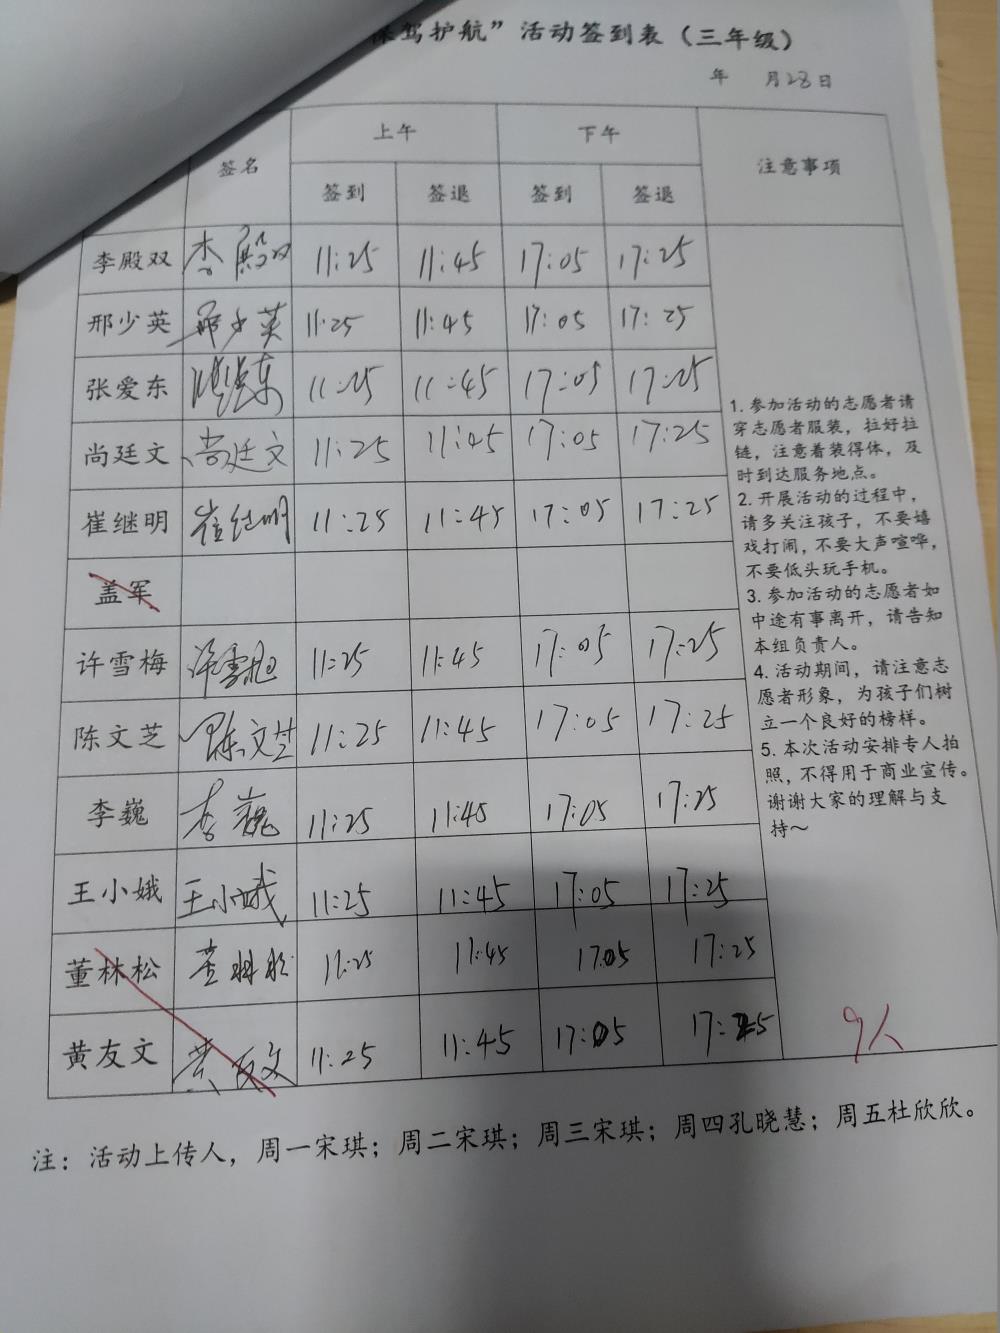 保驾护航”活动签到表（三年级）
年 月28日
签名 上午 下午 注意事项
签到 签退 签到 签退
李殿双 李殿双 11:25 11:45 17:05 17:25
邢少英 邢少英 11:25 11:45 17:05 17:25
张爱东 张爱东 11:25 11:45 17:05 17:25
尚廷文 尚廷文 11:25 11:45 17:05 17:25
崔继明 崔继明 11:25 11:45 17:05 17:25
盖军
许雪梅 许雪梅 11:25 11:45 17:05 17:25
陈文芝 陈文芝 11:25 11:45 17:05 17:25
李巍 李巍 11:25 11:45 17:05 17:25
王小娥 王小娥 11:25 11:45 17:05 17:25
董林松 董林松 11:25 11:45 17:05 17:25
黄友文 黄友文 11:25 11:45 17:05 17:25
1. 参加活动的志愿者请
穿志愿者服装，拉好拉
链，注意着装得体，及
时到达服务地点。
2. 开展活动的过程中，
请多关注孩子，不要嬉
戏打闹，不要大声喧哗，
不要低头玩手机。
3. 参加活动的志愿者如
中途有事离开，请告知
本组负责人。
4. 活动期间，请注意志
愿者形象，为孩子们树
立一个良好的榜样。
5. 本次活动安排专人拍
照，不得用于商业宣传。
谢谢大家的理解与支
持～
9人
注：活动上传人，周一宋琪；周二宋琪；周三宋琪；周四孔晓慧；周五杜欣欣。